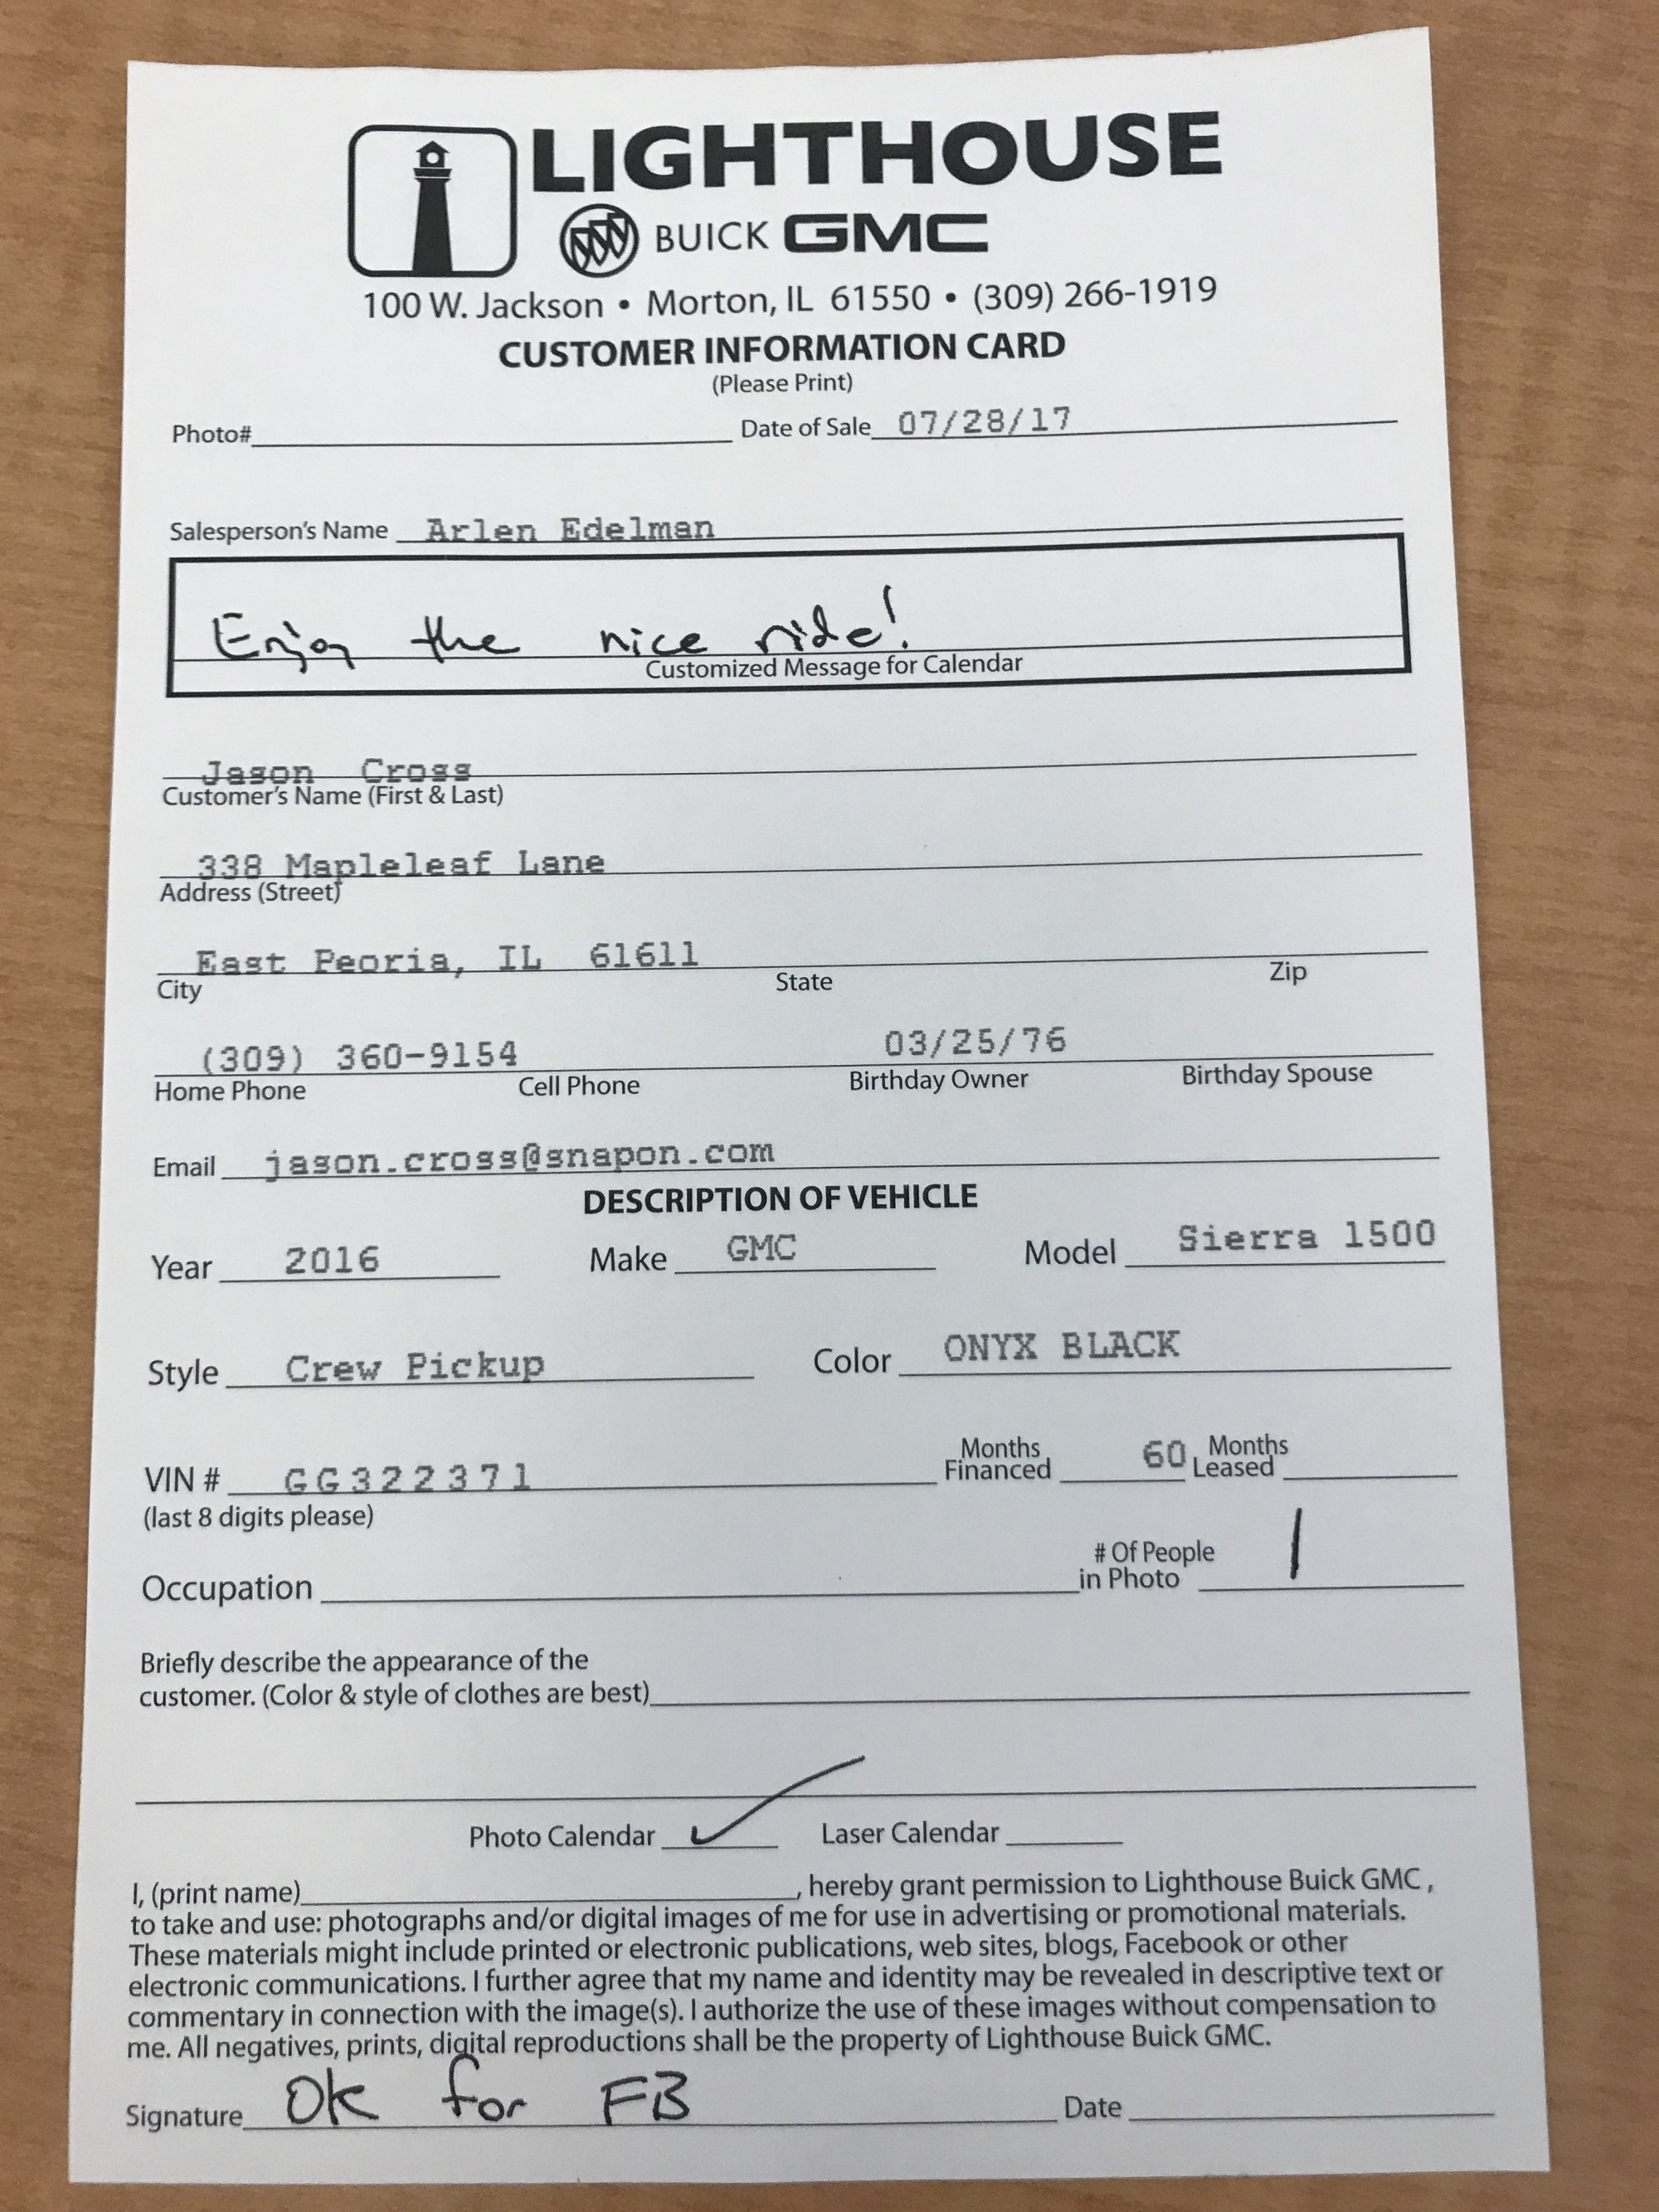 LIGHTHOUSE
BUICK GMC
100 W. Jackson • Morton, IL 61550 • (309) 266-1919
CUSTOMER INFORMATION CARD
(Please Print)
Photo# Date of Sale 07/28/17
Salesperson's Name Arlen Edelman
Enjoy the nice ride!
Customized Message for Calendar
Jason Cross
Customer's Name (First & Last)
338 Mapleleaf Lane
Address (Street)
East Peoria, IL 61611
City State Zip
(309) 360-9154 03/25/76
Home Phone Cell Phone Birthday Owner Birthday Spouse
Email jason.cross@snapon.com
DESCRIPTION OF VEHICLE
Year 2016 Make GMC Model Sierra 1500
Style Crew Pickup Color ONYX BLACK
VIN # GG322371 Months Financed 60 Months Leased
(last 8 digits please)
Occupation # Of People in Photo 1
Briefly describe the appearance of the
customer. (Color & style of clothes are best)
Photo Calendar ✓ Laser Calendar
I, (print name) , hereby grant permission to Lighthouse Buick GMC ,
to take and use: photographs and/or digital images of me for use in advertising or promotional materials.
These materials might include printed or electronic publications, web sites, blogs, Facebook or other
electronic communications. I further agree that my name and identity may be revealed in descriptive text or
commentary in connection with the image(s). I authorize the use of these images without compensation to
me. All negatives, prints, digital reproductions shall be the property of Lighthouse Buick GMC.
Signature OK for FB Date